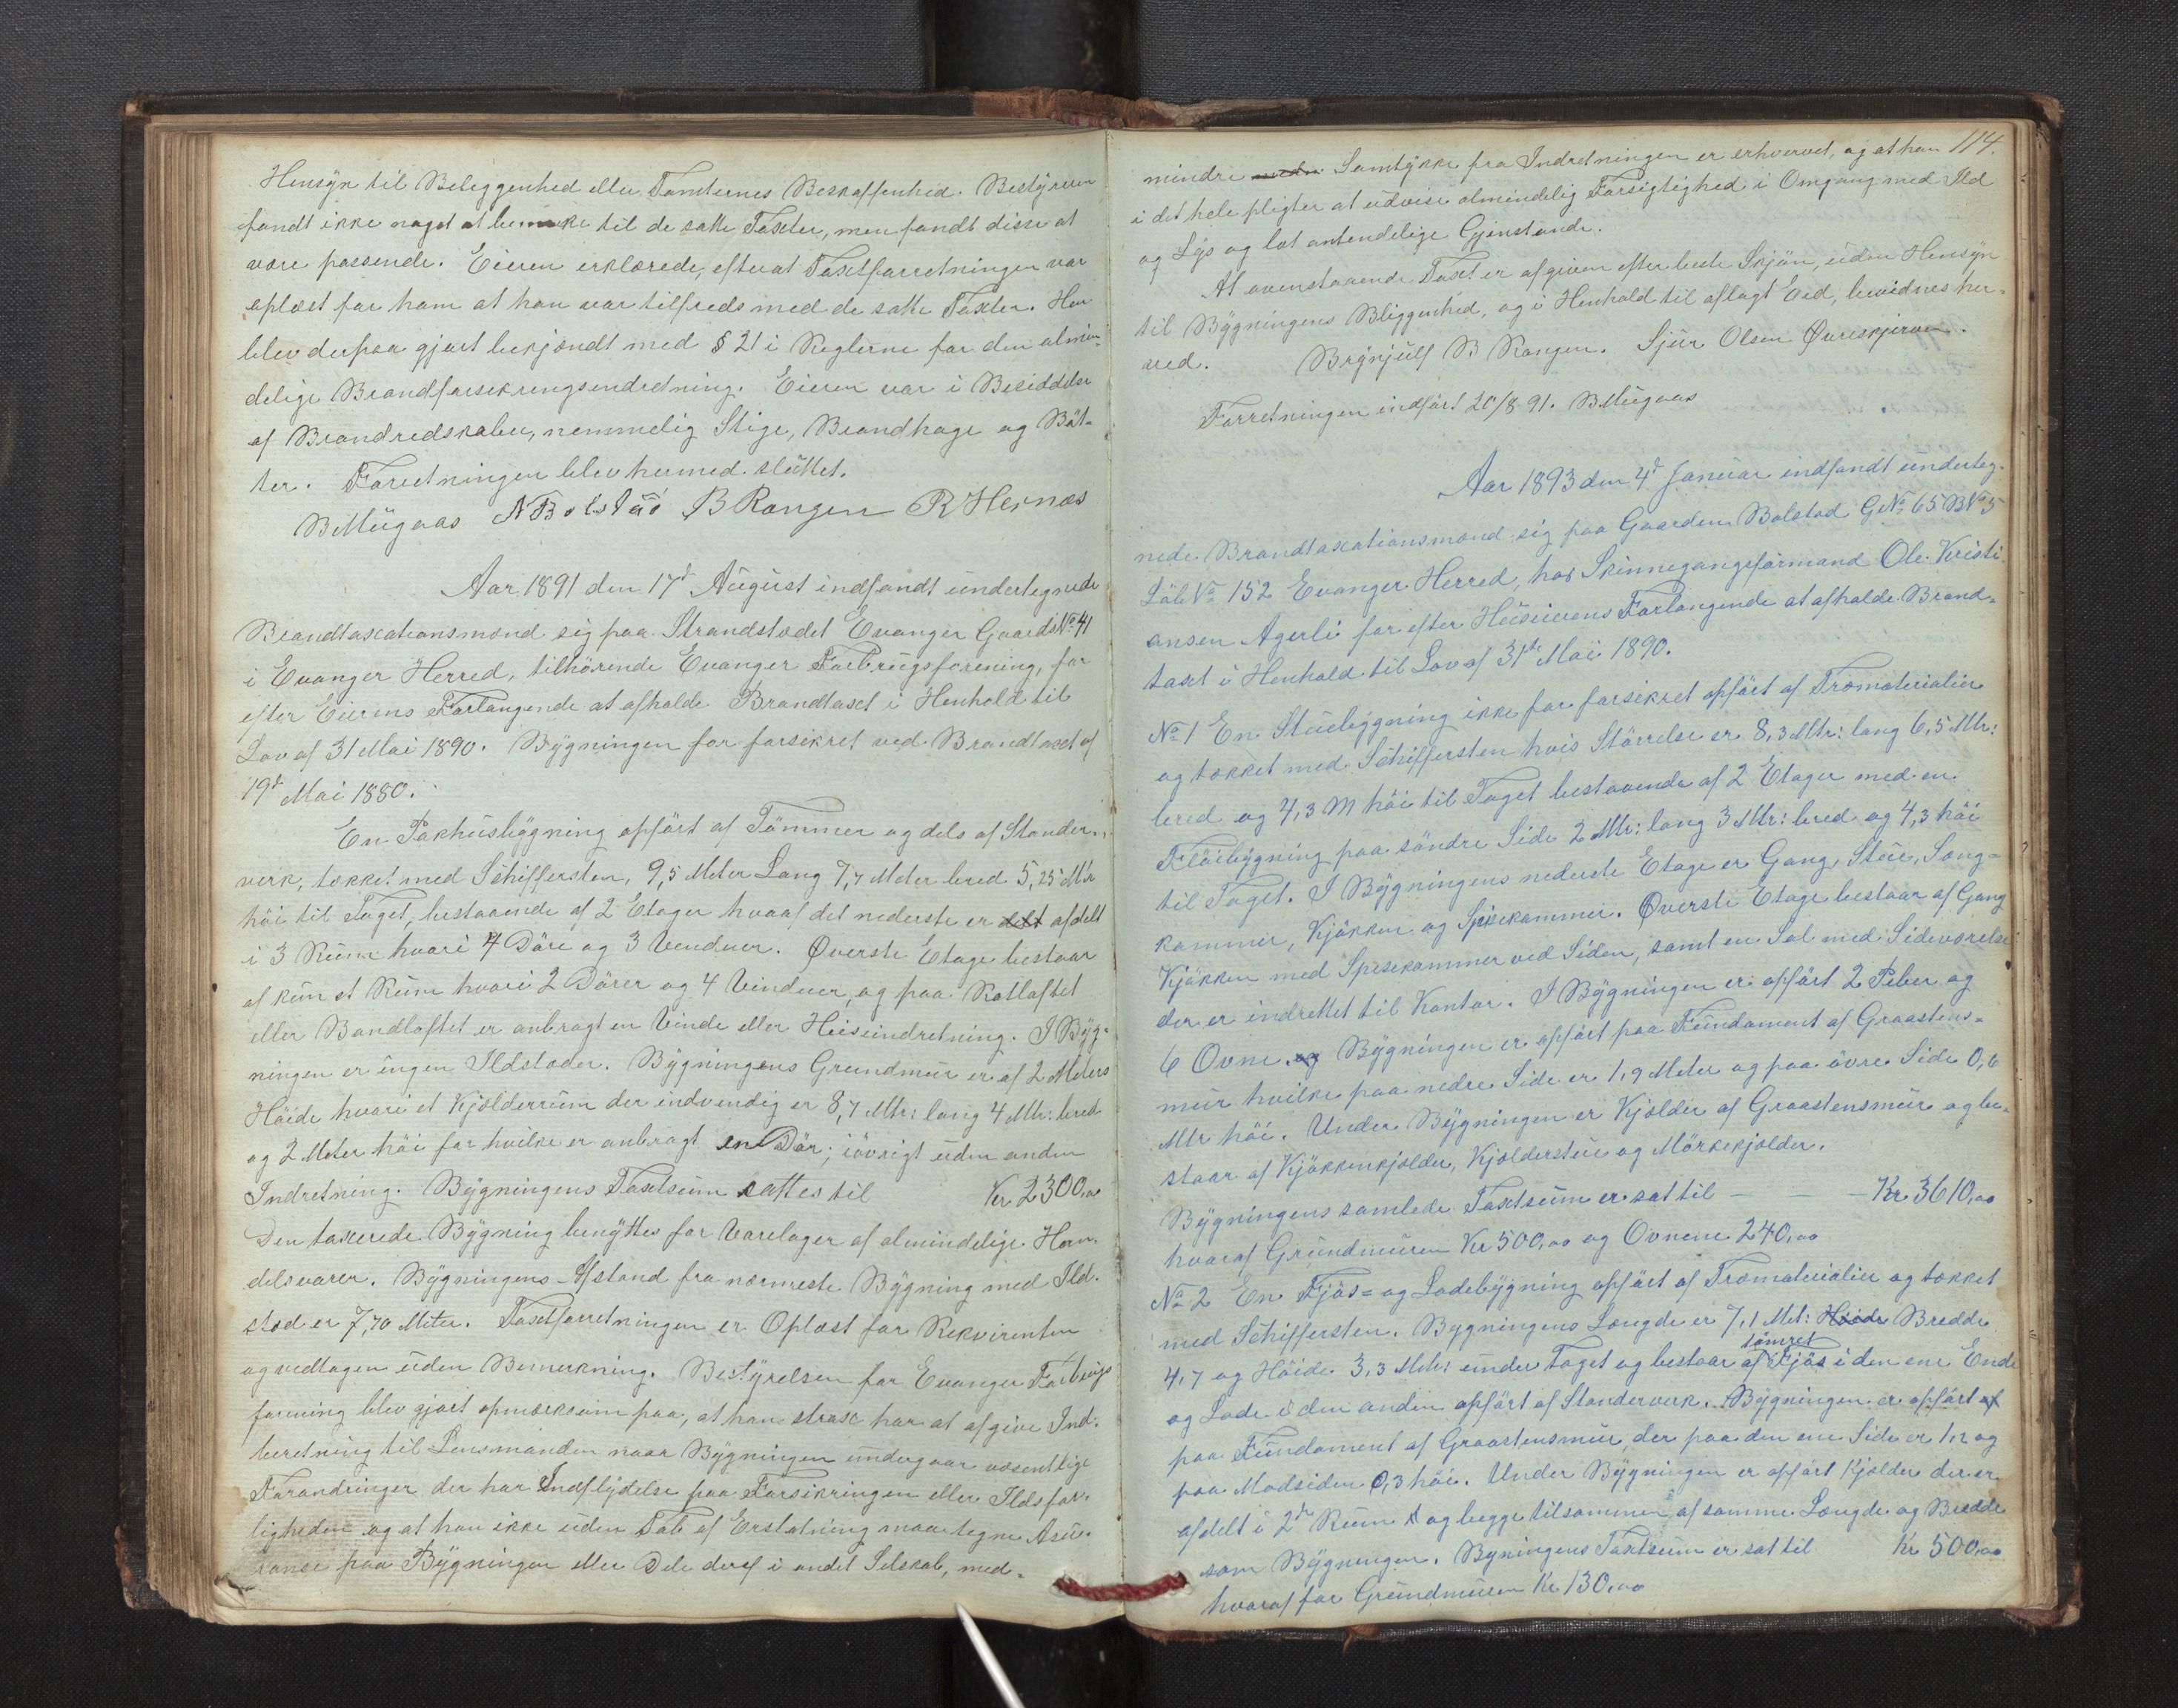 Hensyn til Beleggenhed eller Tomternes Beskaffenhed. Bestyreren
fandt ikke noget at bemerke til de satte Taxter, men fandt disse at
være passende. Eieren erklærede, efterat Taxtforretningen var
oplæst for ham at han var tilfreds med de satte Taxter. Han
blev derpaa gjort bekjændt med § 21 i Reglerne for den almin-
delige Brandforsikringsindretning. Eieren var i Besiddelse
af Brandredskaber, nemmelig Stige, Brandhage og Böt-
ter. Forretningen blev hermed sluttet.
BMügaas N Bolstad B Rongen R Hernæs
Aar 1891 den 17de August indfandt undertegnede
Brandtaxationsmænd sig paa Strandstedet Evanger Gaards No 41
i Evanger Herred, tilhörende Evanger Forbrugsforening, for
efter Eierens Forlangende at afholde Brandtaxt i Henhold til
Lov af 31 Mai 1890. Bygningen för forsikret ved Brandtaxt af
19de Mai 1880.
En Pakhusbygning opfört af Tömmer og dels af Stander-
verk, tækket med Schiffersten, 9,5 Meter Lang 7,7 Meter bred 5,25 Mtr
höi til Taget, bestaaende af 2 Etager hvoraf det nederste er delt afdelt
i 3 Rum hvori 4 Döre og 3 Venduer. Øverste Etage bestaar
af kun et Rum hvori 2 Dörer og 4 Vinduer, og paa Rotloftet
eller Bandloftet er anbragt en Vinde eller Heiseindretning. I Byg-
ningen er ingen Ildstæder. Bygningens Grundmur er af 2 Meters
Höide hvori et Kjælderrum der indvendig er 8,7 Mtr: lang 4 Mtr: bred
og 2 Meter höi for hvilke er anbragt en Dör; iövrigt uden anden
Indretning. Bygningens Taxtsum sattes til Kr 2300,00
Den taxerede Bygning benyttes for Varelager af almindelige Han-
delsvarer. Bygningens Afstand fra nærmeste Bygning med Ild-
sted er 7,70 Meter. Taxtforretningen er Oplæst for Rekvirenten
og vedtagen uden Bemerkning. Bestyrelsen for Evanger Forbrugs
forening blev gjort opmærksom paa, at han strax har at afgive Ind-
beretning til Lensmanden naar Bygningen undergaar væsentlige
Forandringer der har Indflydelse paa Forsikringen eller Ildsfar-
ligheden og at han ikke uden Tab af Erstatning maa tegne Asu-
ranse paa Bygningen eller Dele deraf i andet Selskab, med-
114.
mindre meder Samtykke fra Indretningen er erhvervet, og at han
i det hele pligter at udvise almindelig Forsigtighed i Omgang med Ild
og Lys og let antendelige Gjenstande.
At ovenstaaende Taxt er afgiven efter beste Skjön, uden Hensyn
til Bygningens Bliggenhed, og i Henhold til aflagt Eed, bevidnes her-
ved. Brynjulf B Rongen. Sjur Olsen Øvreskjerven.
Forretningen indfört 20/8 91. BMügaas
Aar 1893 den 4de Januar indfandt underteg-
nede Brandtaxationsmænd sig paa Gaarden Bolstad GNo 65 BNo 5
Löbe No 152 Evanger Herred, hos Skinnegangsformand Ole Kristi-
ansen Agerli for efter Huseierens Forlangende at afholde Brand-
taxt i Henhold til Lov af 31te Mai 1890.
No 1 En Stuebygning ikke för forsikret opfört af Træmaterialier
og tækket med Schiffersten hvis Störrelse er 8,3 Mtr: lang 6,5 Mtr:
bred og 4,3 M höi til Taget bestaaende af 2 Etager med en
Flöibygning paa söndre Side 2 Mtr: lang 3 Mtr: bred og 4,3 höi
til Taget. I Bygningens nederste Etage er Gang, Stue, Seng-
kammer, Kjökken og Spisekammer. Øverste Etage bestaar af Gang
Kjökken med Spisekammer ved Siden, samt en Sal med Sideværelse
der er indrettet til Kontor. I Bygningen er opfört 2 Peber og
6 Ovne. og Bygningen er opfört paa Fundament af Graastens-
mur hvilke paa nedre Side er 1,9 Meter og paa övre Side 0,6
Mtr höi. Under Bygningen er Kjælder af Graastensmur og be-
staar af Kjökkenkjælder, Kjælderstue og Mörkekjælder.
Bygningens samlede Taxtsum er sat til — — — Kr 3610,00
hvoraf Grundmuren Kr 500,00 og Ovnene 240,00
No 2 En Fjös- og Ladebygning opfört af Træmaterialier og tækket
med Schiffersten. Bygningens Længde er 7,1 Met: Höide Bredde
4,7 og Höide 3,3 Mtr: under Taget og bestaar af tömret Fjös i den ene Ende
og Lade i den anden opfört af Standerverk. Bygningen er opfört af
paa Fundament af Graastensmur, der paa den ene Side er 1,2 og
paa Modsiden 0,3 höi. Under Bygningen er opfört Kjælder der er
afdelt i 2de Rum og begge tilsammen af samme Længde og Bredde
som Bygningen. Byningens Taxtsum er sat til Kr 500,00
hvoraf for Grundmuren Kr 130,00